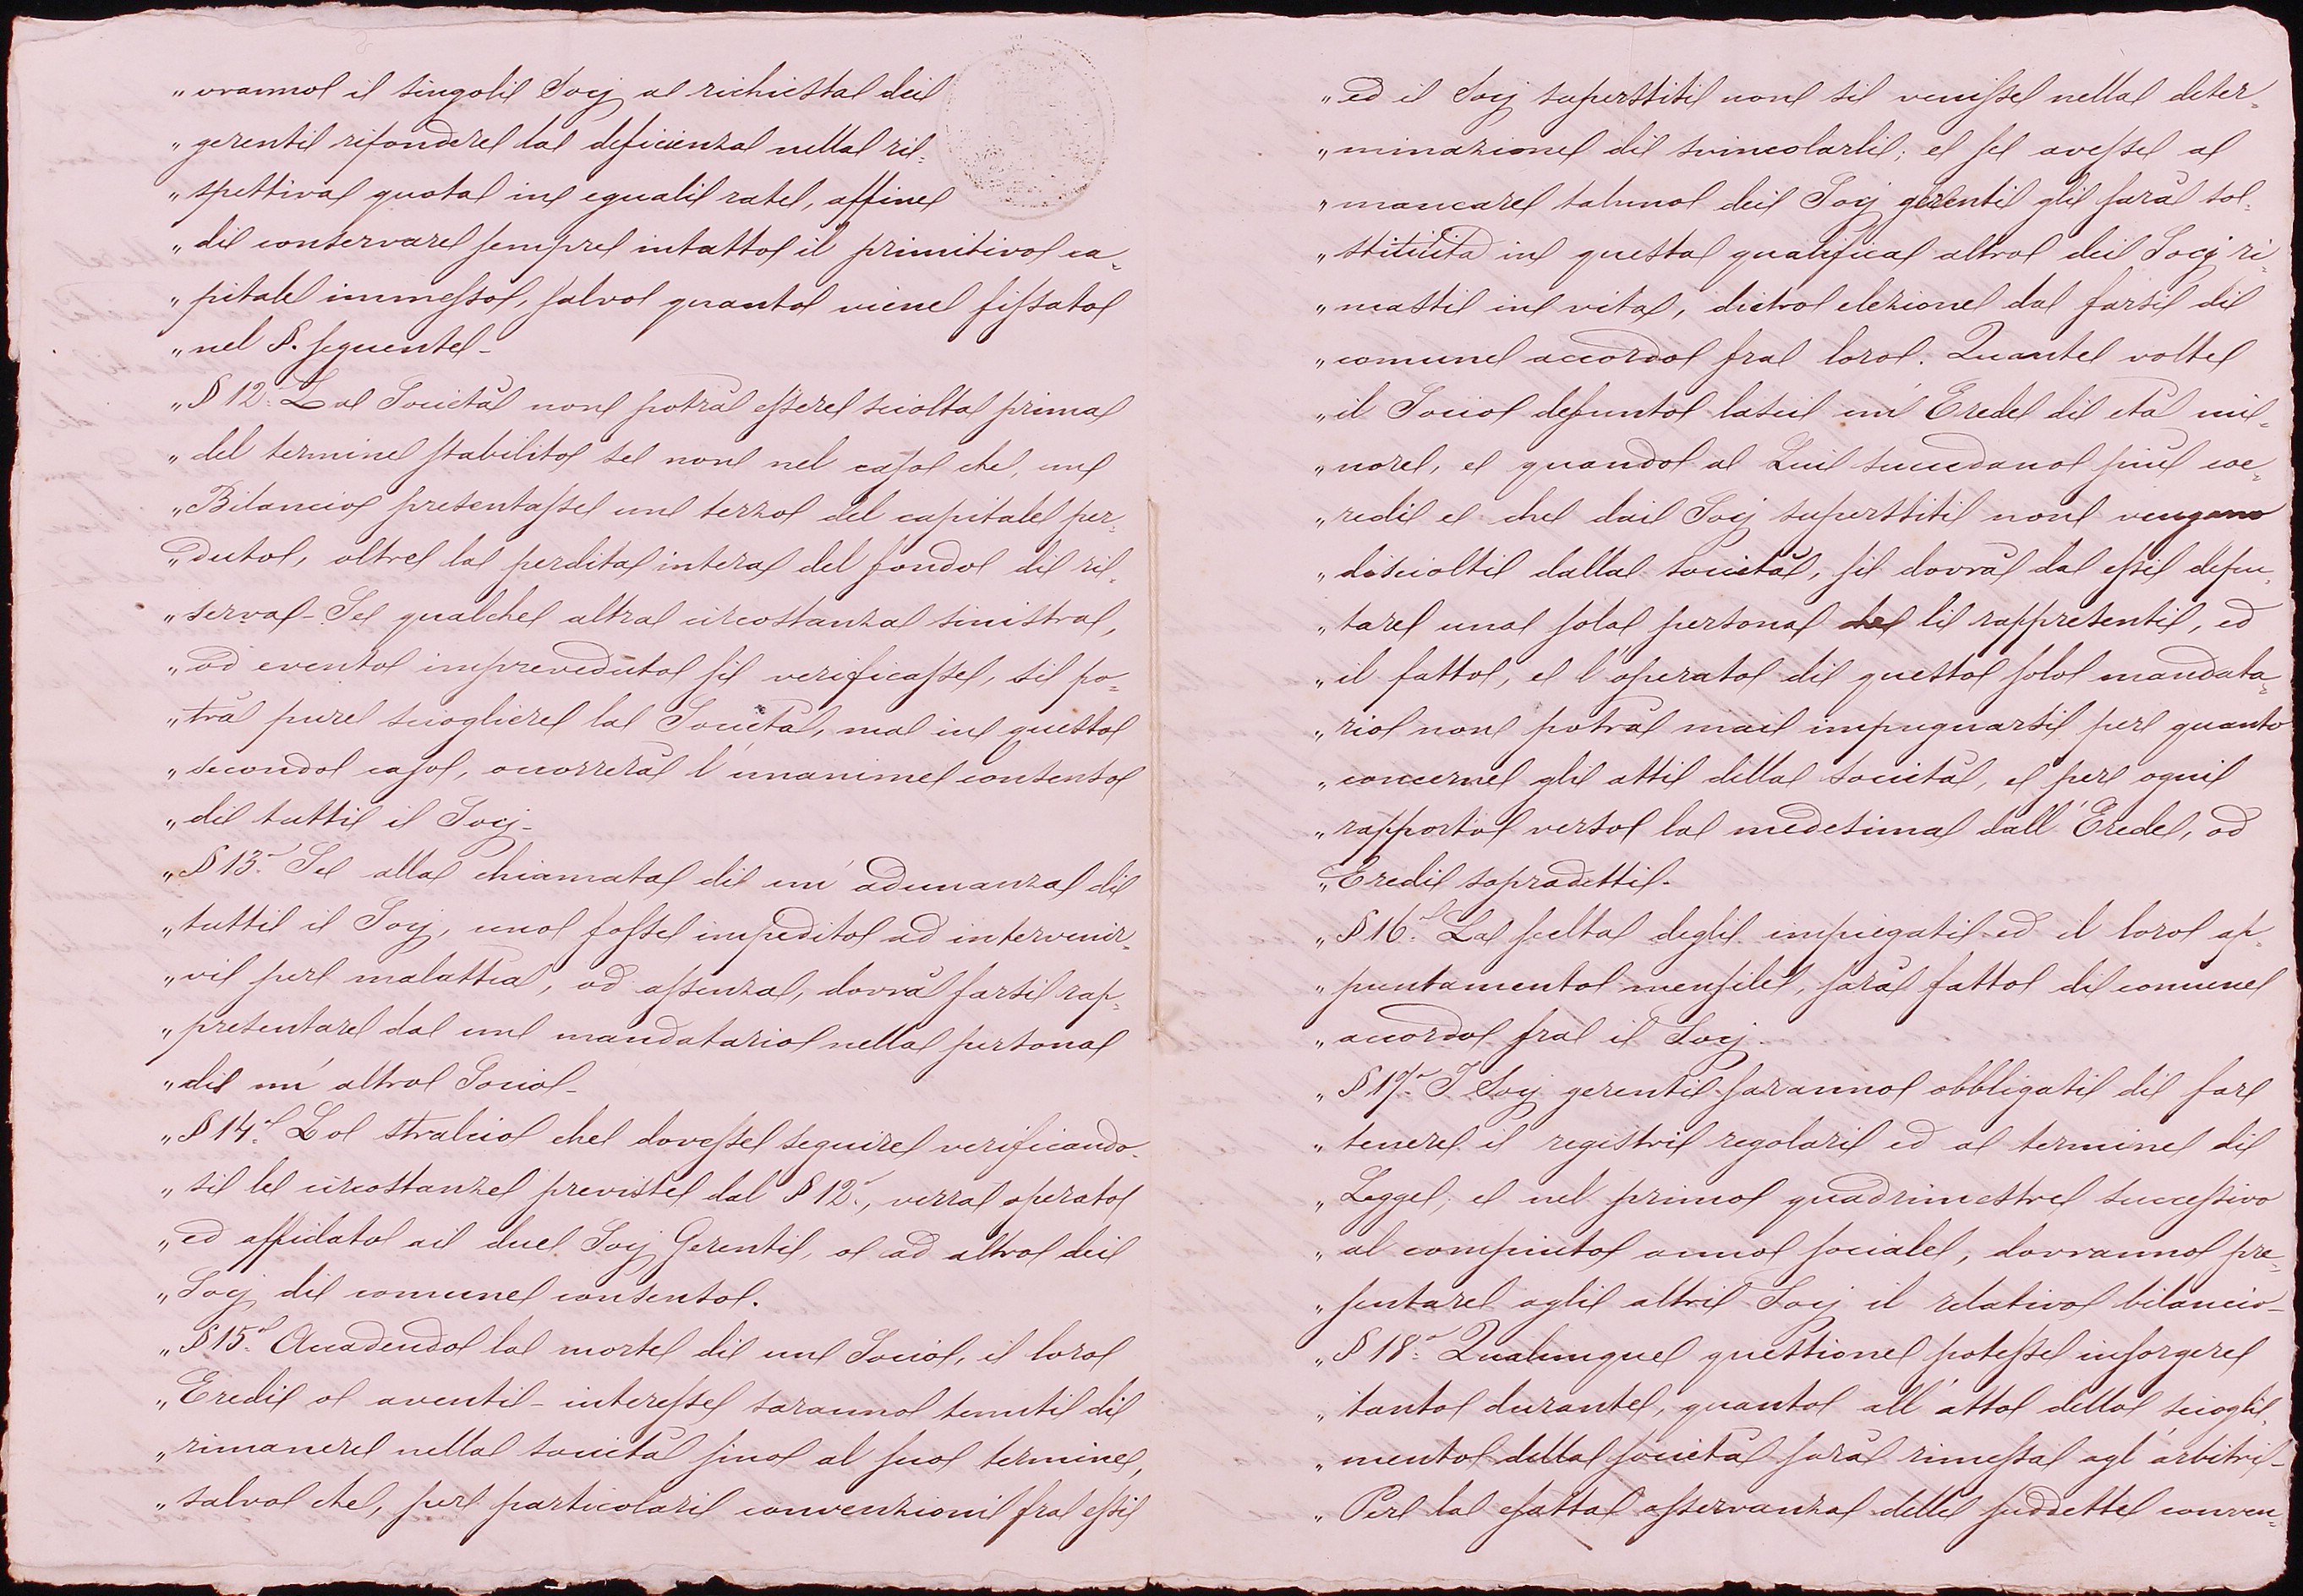 „vranno i singoli Socj a richiesta dei
„gerenti rifondere la deficienza nella ri„
„spettiva quota in eguali rate, affine
„di conservare sempre intatto il primitivo ca„
„pitale immesso, salvo quanto viene fissato
„nel §. seguente–
„§ 12. La Società non potrà essere sciolta prima
„del termine stabilito se non nel caso che, un
„Bilancio presentasse un terzo del capitale per„
„duto, oltre la perdita intera del fondo di ri„
„serva– Se qualche altra circostanza sinistra,
„od evento impreveduto si verificasse, si po„
„trà pure sciogliere la Società, ma in questo
„secondo caso, occorrerà l'unanime consenso
„di tutti i Socj–
„§ 13. Se alla chiamata di un'adunanza di
„tutti i Socj, uno fosse impedito ad interveni„
„vi per malattia, od assenza, dovrà farsi rap„
„presentare da un mandatario nella persona
„di un'altro Socio–
„§ 14. Lo stralcio che dovesse seguire verificando„
„si le circostanze previste dal § 12., verrà operato
„ed affidato ai due Socj Gerenti, o ad altro dei
„Socj di comune consenso.
„§ 15. Accadendo la morte di un Socio, i loro
„Eredi o aventi–interesse saranno tenuti di
„rimanere nella società sino al suo termine,
„salvo che, per particolari convenzioni fra essi
„ed i Socj superstiti non si venisse nella deter„
„minazione di svincolarli; e se avesse a
„mancare taluno dei Socj gerenti gli sarà so„
„stituita in questa qualifica altro dei Socj ri„
„masti in vita, dietro elezione da farsi di
„comune accordo fra loro. Quante volte
„il Socio defunto lasci un'Erede di età mi„
„nore, e quando a Lui succedano più coe„
„redi e che dai Socj superstiti non vengano
„disciolti dalla società, si dovrà da essi depu„
„tare una sola persona che li rappresenti, ed
„il fatto, e l'operato di questo solo mandata„
„rio non potrà mai impugnarsi per quanto
„concerne gli atti della società, e per ogni
„rapporto verso la medesima dall'Erede, od
„Eredi sopradetti.
„§ 16. La scelta degli impiegati ed il loro ap„
„puntamento mensile, sarà fatto di comune
„accordo fra i Socj.
„§ 17. I Socj gerenti saranno obbligati di far
„tenere i registri regolari ed a termine di
„Legge, e nel primo quadrimestre successivo
„al compiuto anno sociale, dovranno pre„
„sentare agli altri Socj il relativo bilancio–
„§ 18. Qualunque questione potesse insorgere
„tanto durante, quanto all'atto dello sciogli„
„mento della società sarà rimessa agl'arbitri–
„Per la esatta osservanza delle suddette conven„